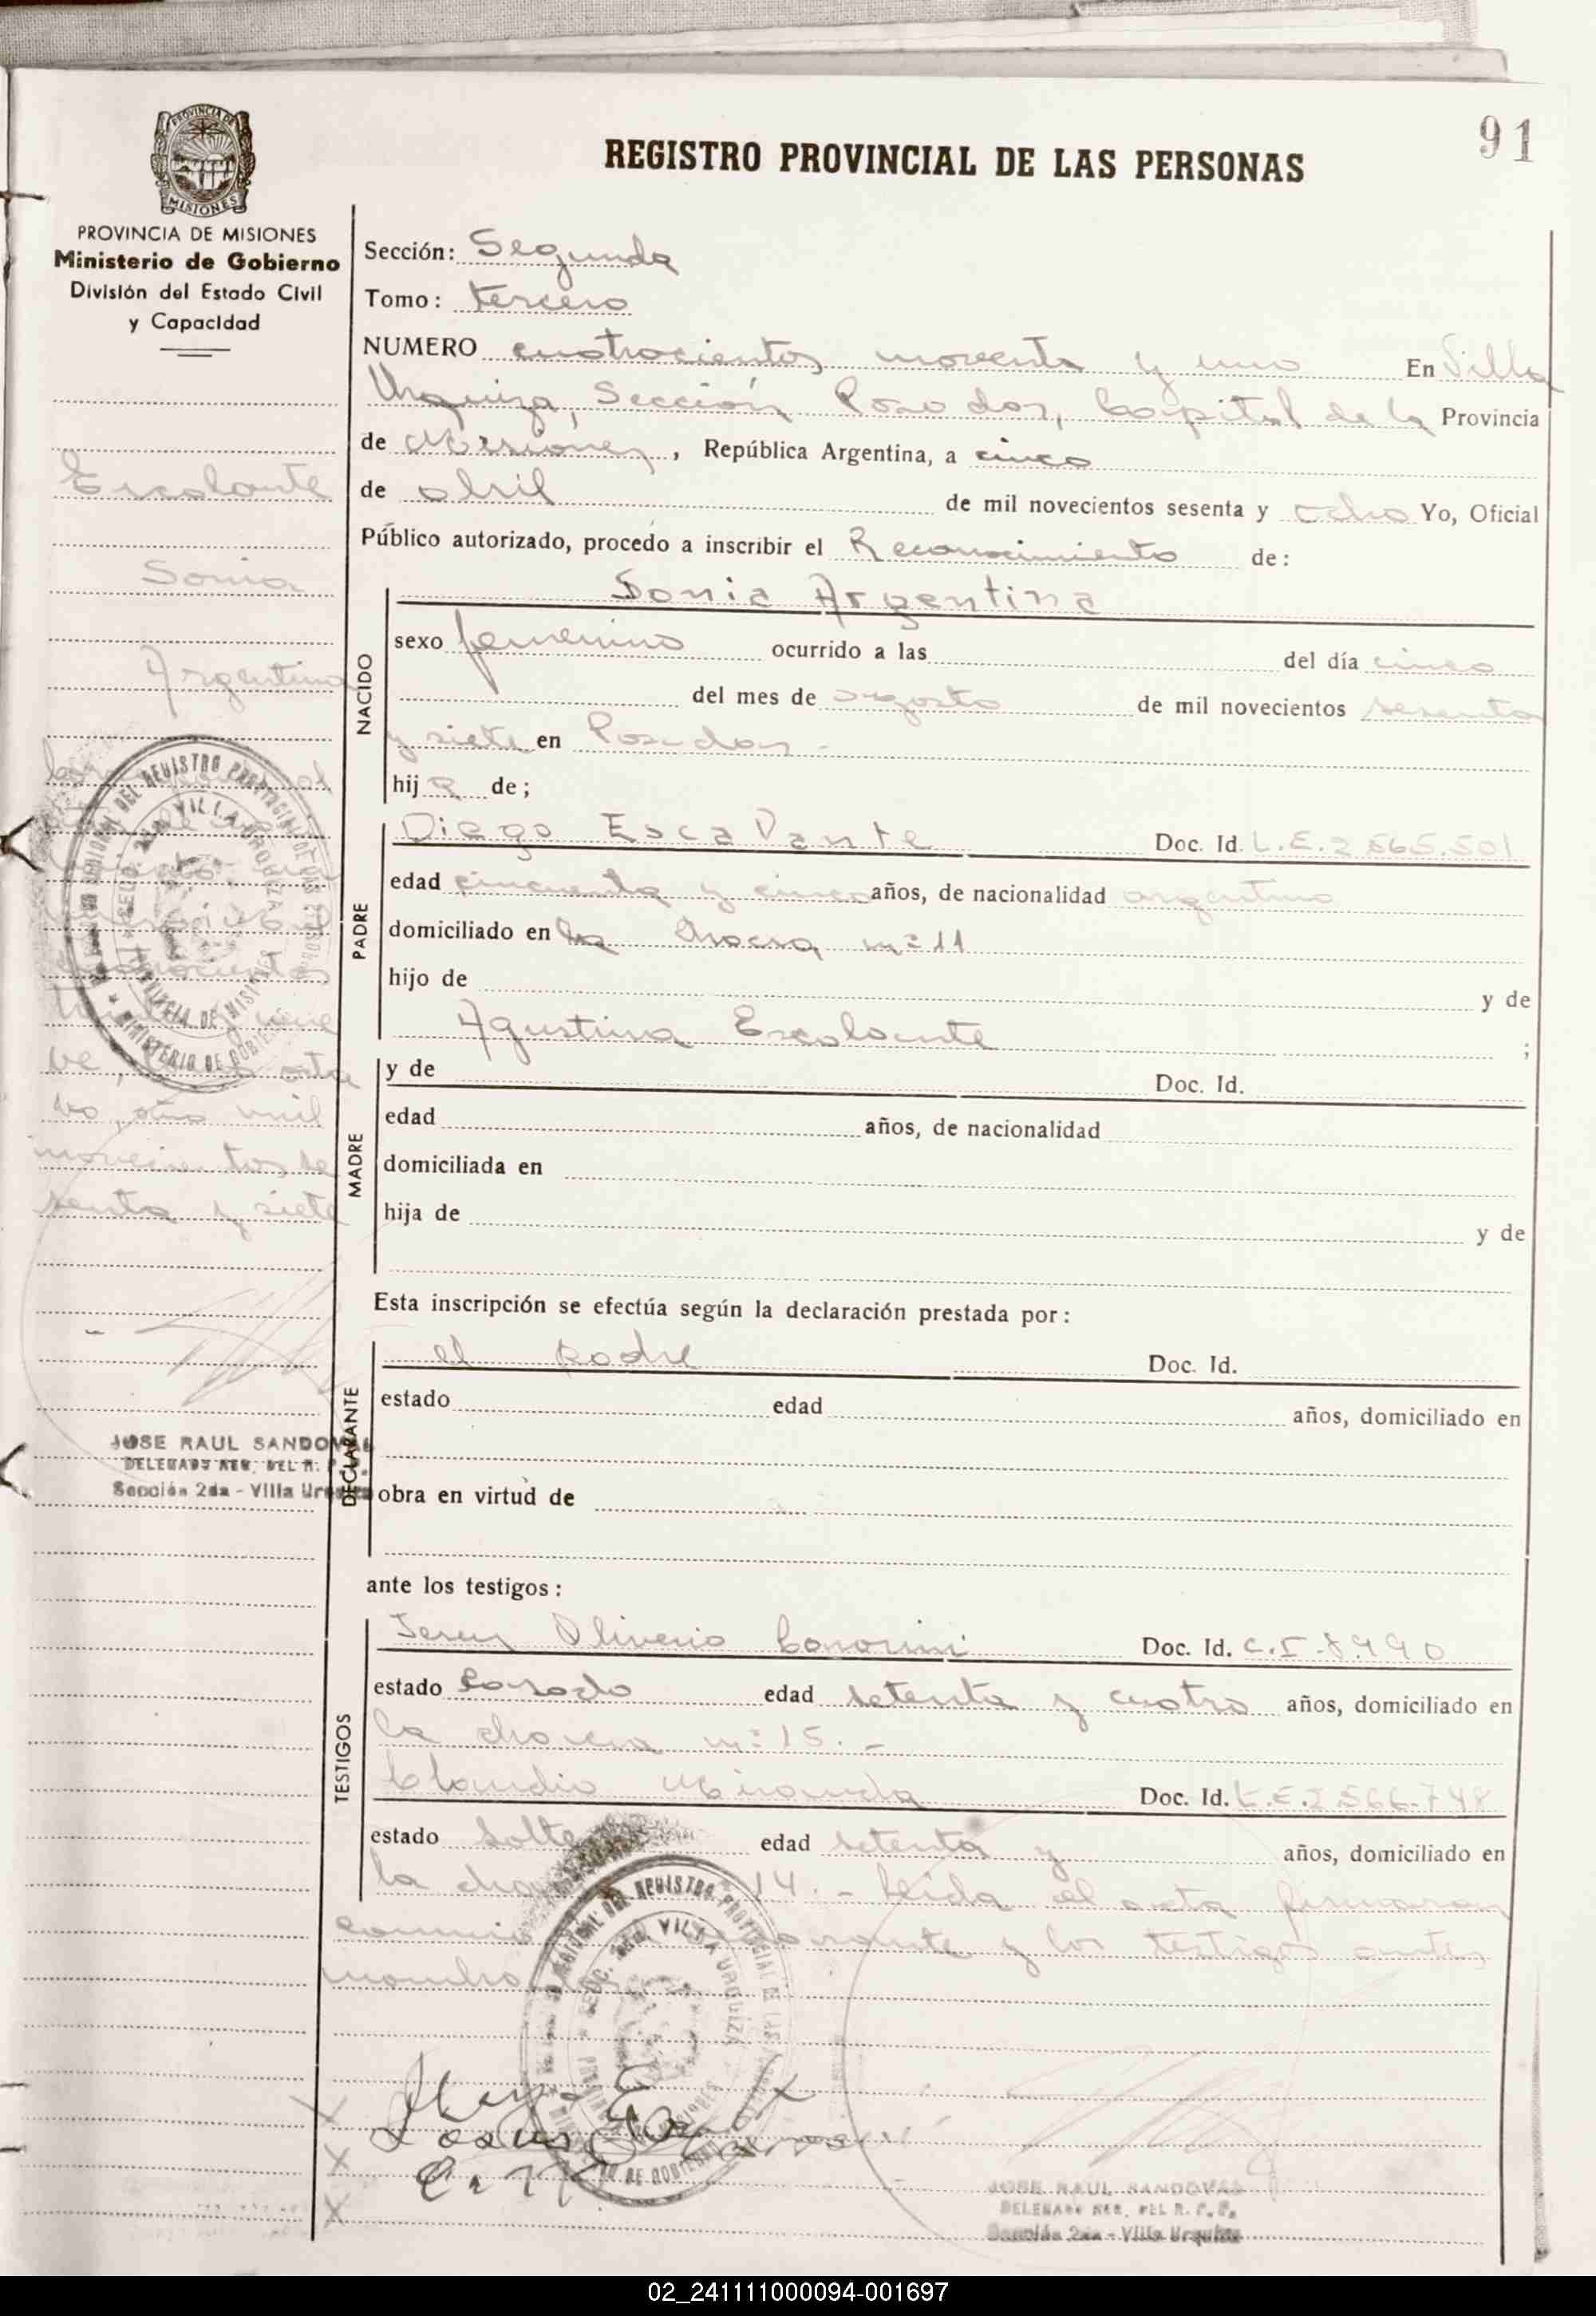 91
REGISTRO PROVINCIAL DE LAS PERSONAS
PROVINCIA DE MISIONES
Ministerio de Gobierno
División del Estado Civil
y Capacidad
Escalante
Sonia
Argentina
tos, se
senta y siete
JOSE RAUL SANDOVAL
DELEGADO REG. DEL R. P.
Sección 2da - Villa Urquiza
Sección: Segunda
Tomo: tercero
NUMERO cuatrocientos noventa y uno En Villa
Urquiza, Sección Posadas, Capital de la Provincia
de Misiones, República Argentina, a cinco
de abril de mil novecientos sesenta y ocho Yo, Oficial
Público autorizado, procedo a inscribir el Reconocimiento de:
NACIDO
Sonia Argentina
sexo femenino ocurrido a las del día cinco
del mes de agosto de mil novecientos sesenta
y siete en Posadas -
hija de;
PADRE
Diego Escalante Doc. Id. L.E. 2.565.501
edad cincuenta y cinco años, de nacionalidad argentino
domiciliado en la chacra nº 11
hijo de y de
Agustina Escalante ;
MADRE
y de Doc. Id.
edad años, de nacionalidad
domiciliada en
hija de y de
Esta inscripción se efectúa según la declaración prestada por:
DECLARANTE
el padre Doc. Id.
estado edad años, domiciliado en
obra en virtud de
ante los testigos:
TESTIGOS
Jesus Oliverio Doc. Id. C.I. 8.990
estado casado edad setenta y cuatro años, domiciliado en
la chacra nº 15. -
Claudio Miranda Doc. Id. L.E. 2.566.748
estado edad setenta y años, domiciliado en
la 14. - Leida el acta firmaron
y los testigos antes
JOSE RAUL SANDOVAL
DELEGADO REG. DEL R. P. P.
Sección 2da - Villa Urquiza
02_241111000094-001697